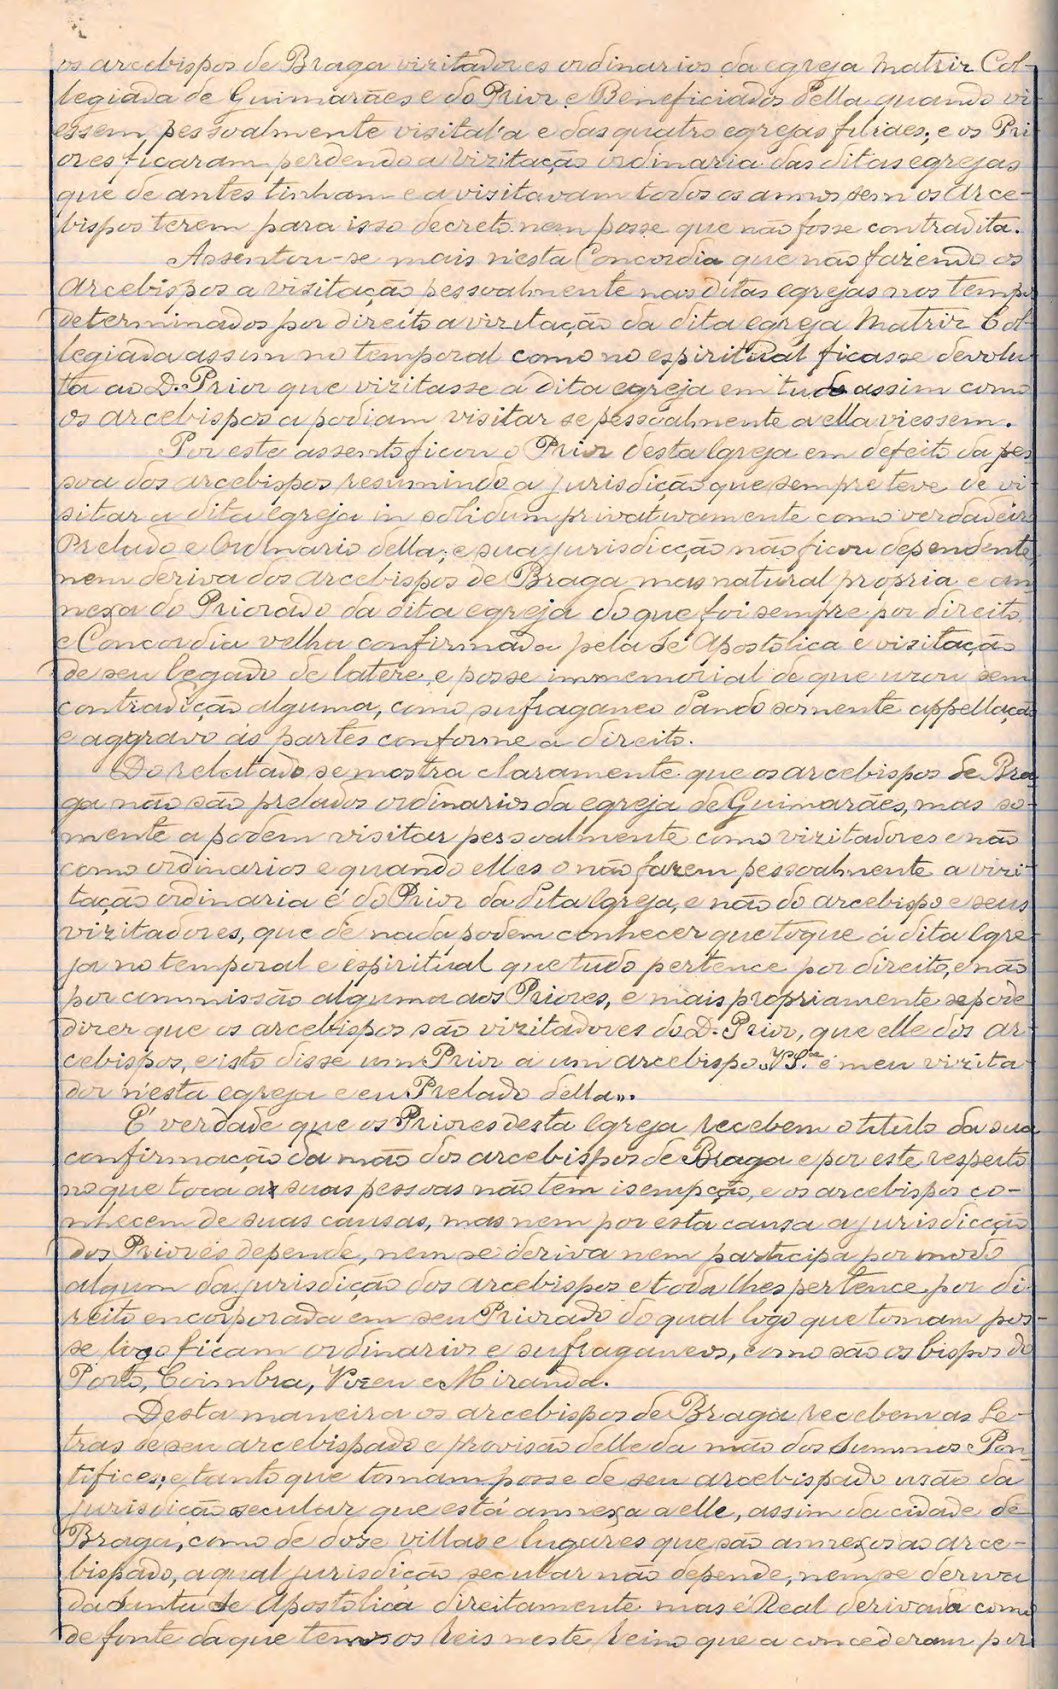 os arcebispos de Braga vizitadores ordinarios da egreja Matriz Col-
legiada de Guimarães e do Prior e Beneficiados della quando vi-
essem pessoalmente visital'a e das quatro egrejas filiaes; e os Pri-
ores ficaram perdendo a vizitação ordinaria das ditas egrejas
que de antes tinham e a visitavam todos os annos sem os Arce-
bispos terem para isso decreto nem posse que não fosse contradita.
Assentou-se mais n'esta Concordia que não fazendo os
Arcebispos a visitação pessoalmente nas ditas egrejas nos tempos
determinados por direito a vizitação da dita egreja Matriz Col-
legiada assim no temporal como no espiritual ficasse devolu-
ta ao D. Prior que vizitasse a dita egreja em tudo assim como
os arcebispos a podiam visitar se pessoalmente a ella viessem.
Por este assento ficou o Prior desta Igreja em defeito da pes-
soa dos arcebispos resumindo a jurisdição que sempre teve de vi-
sitar a dita Igreja in solidum privativamente como verdadeiro
Prelado e Ordinario della; e sua jurisdicção não ficou dependente,
nem deriva dos arcebispos de Braga mas natural propria e an-
nexa do Priorado da dita egreja do que foi sempre por direito
e Concordia velha confirmada pela Sé Apostolica e visitação
de seu legado de latere, e posse immemorial de que uzou sem
contradição alguma, como sufraganeo dando somente appellação
e aggravo ás partes conforme a direito.
Do relatado se mostra claramente que os arcebispos de Bra-
ga não são prelados ordinarios da egreja de Guimarães, mas so-
mente a podem visitar pessoalmente como vizitadores e não
como ordinarios e quando elles o não fazem pessoalmente a vizi-
tação ordinaria é do Prior da dita Igreja, e não do arcebispo e seus
vizitadores, que de nada podem conhecer que toque á dita Igre-
ja no temporal e espiritual que tudo pertence por direito, e não
por commissão alguma aos Priores, e mais propriamente se pode
dizer que os arcebispos são vizitadores do D. Prior, que elle dos ar-
cebispos, e isto disse um Prior a um arcebispo "V. S.ª é meu vizita-
dor n'esta egreja e eu Prelado della".
É verdade que os Priores desta Igreja recebem o titulo da sua
confirmação da mão dos arcebispos de Braga e por este respeito
no que toca as suas pessoas não tem isempção, e os arcebispos co-
nhecem de suas causas, mas nem por esta causa a jurisdicção
dos Priores depende, nem se deriva nem participa por modo
algum da jurisdição dos arcebispos e toda lhes pertence por di-
reito encorporada em seu Priorado do qual logo que tomam pos-
se logo ficam ordinarios e sufraganeos, como são os bispos do
Porto, Coimbra, Vizeu e Miranda.
Desta maneira os arcebispos de Braga recebem as Le-
tras de seu arcebispado e provisão delle da mão dos Summos Pon-
tifices; e tanto que tomam posse de seu arcebispado usão da
jurisdição secular que está annexa a elle, assim da cidade de
Braga, como de doze villas e lugares que são annexos ao arce-
bispado, a qual jurisdição secular não depende, nem se deriva
da Santa Sé Apostolica direitamente mas é Real derivada como
de fonte da que temos os Reis neste Reino que a concederam por